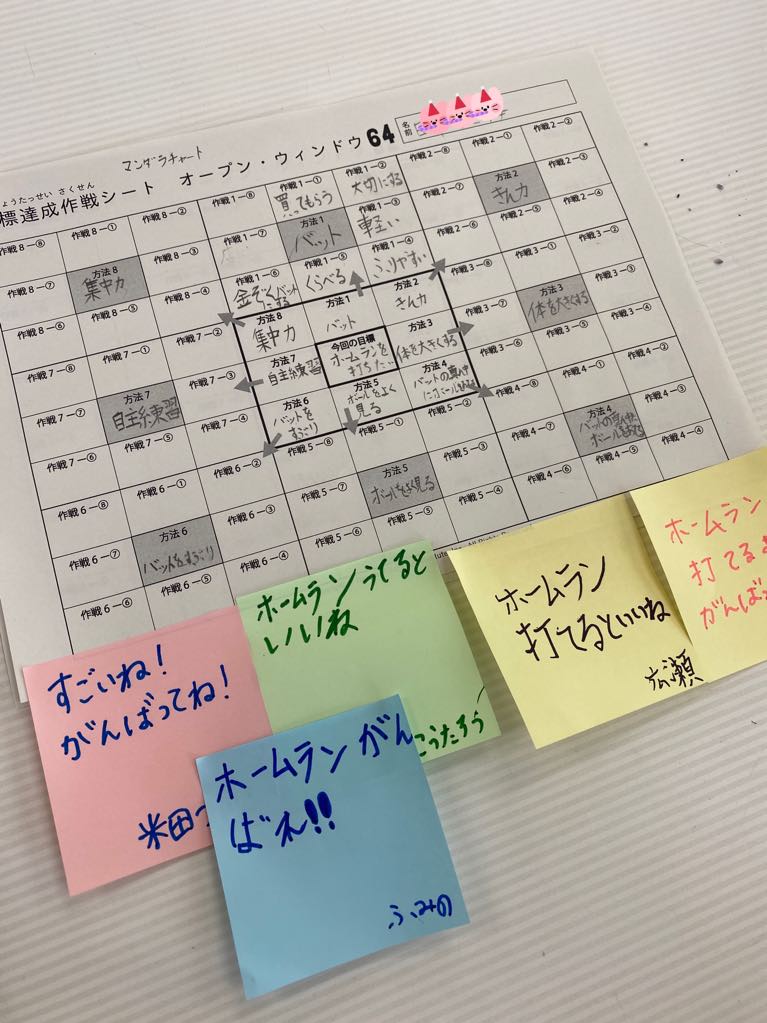 マンダラチャート
ょうたっせい さくせん
標達成作戦シート オープン・ウィンドウ64
名前
作戦8ー⑧ 作戦8ー① 作戦8ー② 作戦1ー⑧ 作戦1ー① 買ってもらう 作戦1ー② 大切にする 作戦2ー⑧ 作戦2ー① 作戦2ー②
作戦8ー⑦ 方法8 集中力 作戦8ー③ 作戦1ー⑦ 方法1 バット 作戦1ー③ 軽い 作戦2ー⑦ 方法2 きん力 作戦2ー③
作戦8ー⑥ 作戦8ー⑤ 作戦8ー④ 作戦1ー⑥ 金ぞくバットにする 作戦1ー⑤ くらべる 作戦1ー④ ふりやすい 作戦2ー⑥ 作戦2ー⑤ 作戦2ー④
作戦7ー⑧ 作戦7ー① 作戦7ー② 方法8 集中力 方法1 バット 方法2 きん力 作戦3ー⑧ 作戦3ー① 作戦3ー②
作戦7ー⑦ 方法7 自主練習 作戦7ー③ 方法7 自主練習 今回の目標 ホームランを打ちたい 方法3 体を大きくする 作戦3ー⑦ 方法3 体を大きくする 作戦3ー③
作戦7ー⑥ 作戦7ー⑤ 作戦7ー④ 方法6 バットをすぶり 方法5 ボールをよく見る 方法4 バットの真中にボールを 作戦3ー⑥ 作戦3ー⑤ 作戦3ー④
作戦6ー⑧ 作戦6ー① 作戦6ー② 作戦5ー⑧ 作戦5ー① 作戦5ー② 作戦4ー⑧ 作戦4ー① 作戦4ー②
作戦6ー⑦ 方法6 バットをすぶり 作戦6ー③ 作戦5ー⑦ 方法5 ボールをよく見る 作戦5ー③ 作戦4ー⑦ 方法4 バットの真中 ボール 作戦4ー③
作戦6ー⑥ 作戦6ー⑤ 作戦6ー④ 作戦5ー⑥ 作戦5ー⑤ 作戦5ー④ 作戦4ー⑥ 作戦4ー⑤ 作戦4ー④
すごいね!
がんばってね!
米田
ホームランうてると
いいね
こうたろう
ホームランがん
ばれ!!
ふみの
ホームラン
打てるといいね
広瀬
ホームラン
打てるよ
がんばっ